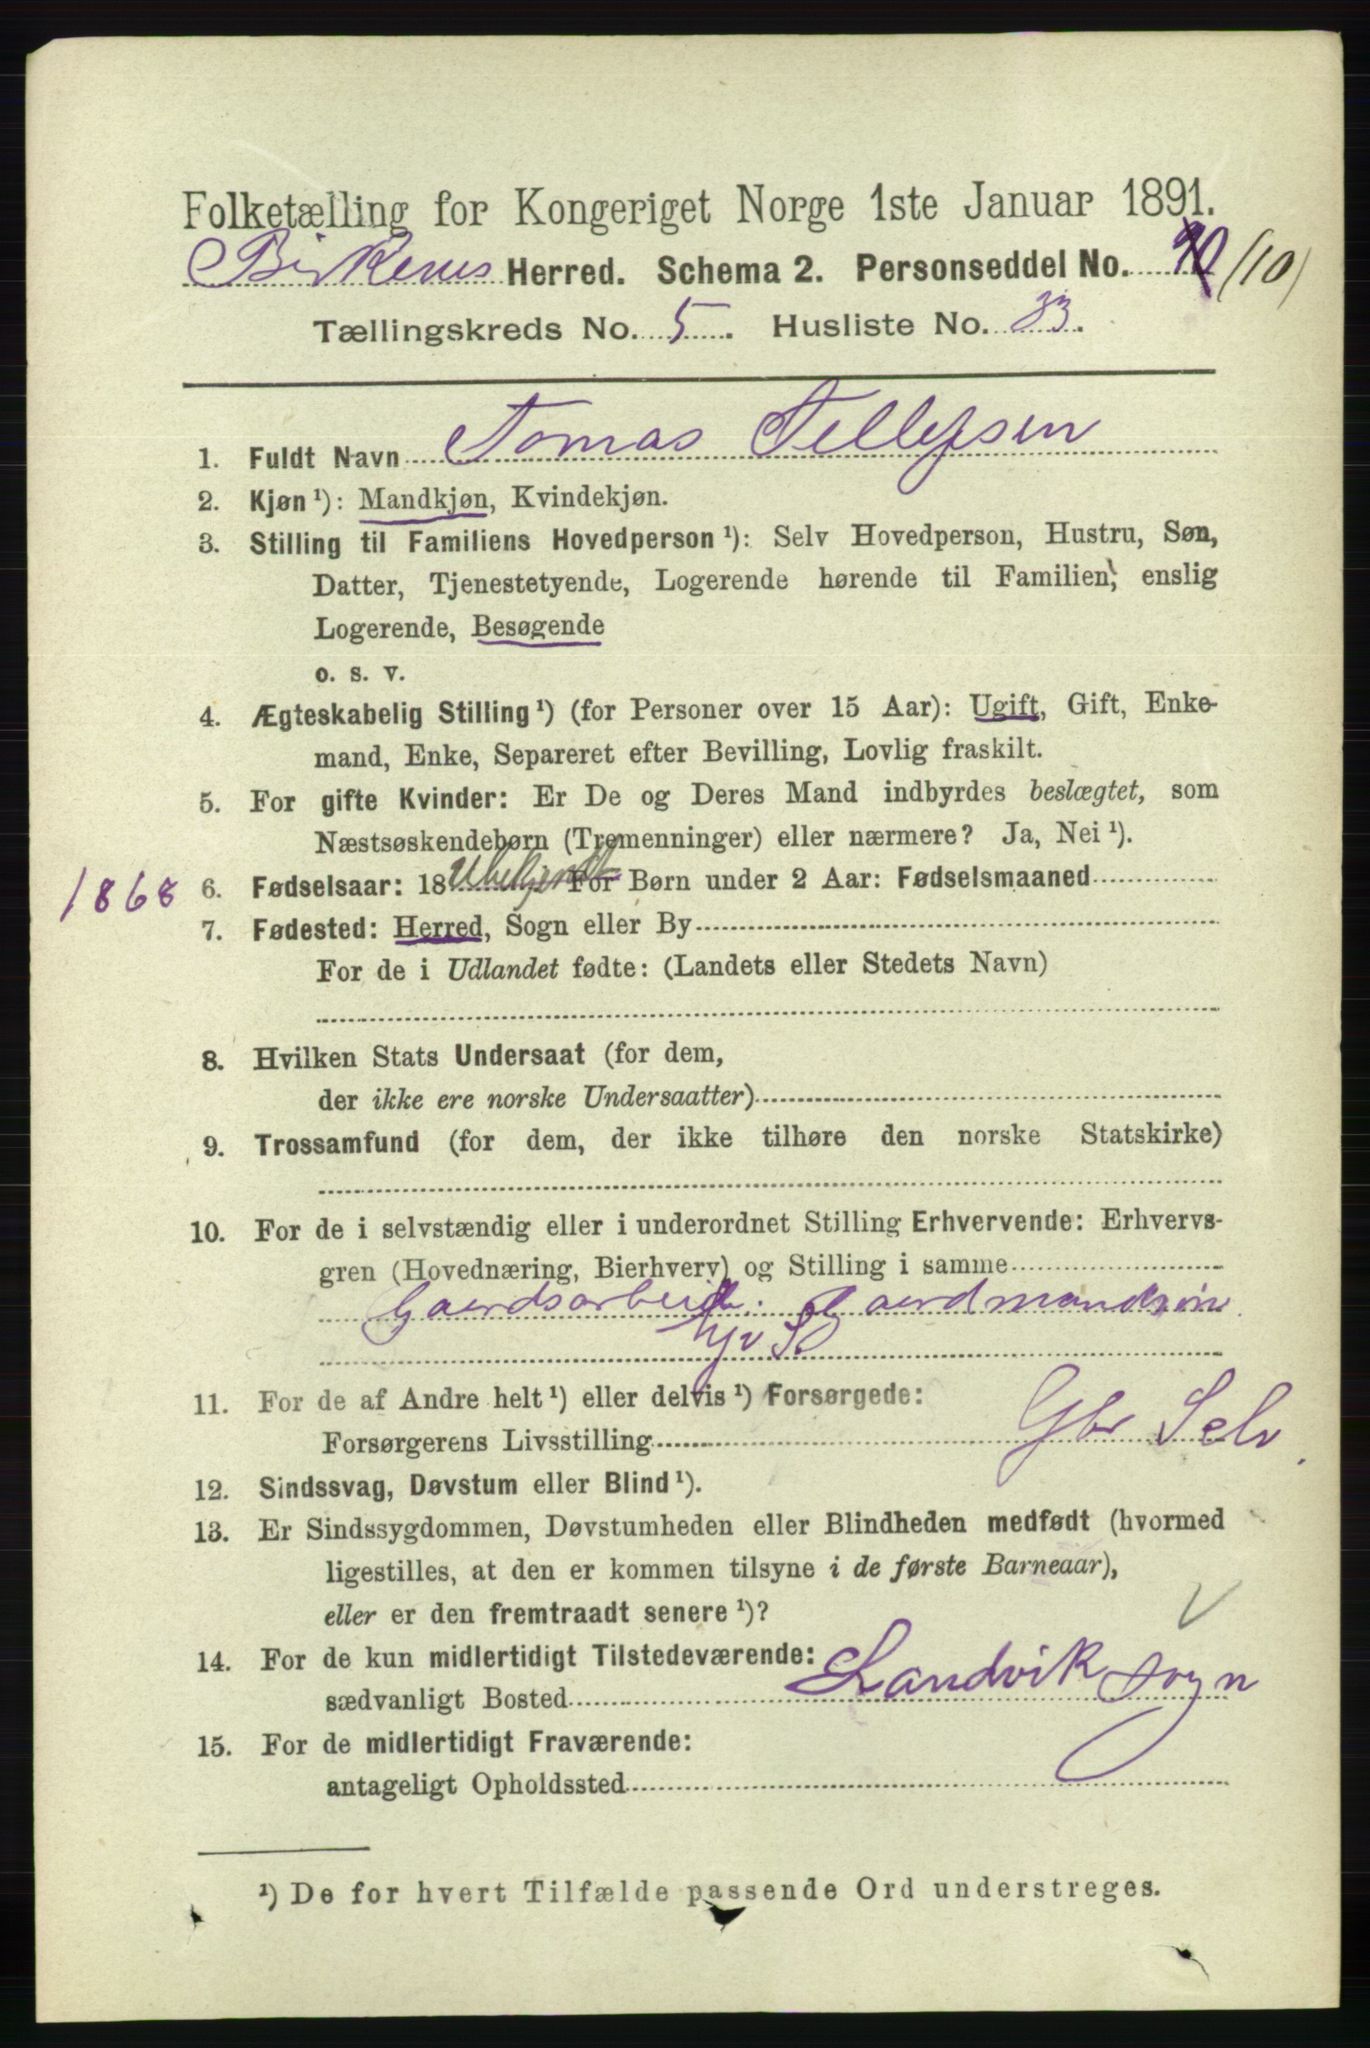 Folketælling for Kongeriget Norge 1ste Januar 1891.
Birkenes Herred. Schema 2. Personseddel No. (10)
Tællingskreds No. 5. Husliste No. 33.
1. Fuldt Navn Tomas Tellefsen
2. Kjøn ¹): Mandkjøn, Kvindekjøn.
3. Stilling til Familiens Hovedperson ¹): Selv Hovedperson, Hustru, Søn,
Datter, Tjenestetyende, Logerende hørende til Familien, enslig
Logerende, Besøgende
o. s. v.
4. Ægteskabelig Stilling ¹) (for Personer over 15 Aar): Ugift, Gift, Enke-
mand, Enke, Separeret efter Bevilling, Lovlig fraskilt.
5. For gifte Kvinder: Er De og Deres Mand indbyrdes beslægtet, som
Næstsøskendebørn (Tremenninger) eller nærmere? Ja, Nei ¹).
1868 6. Fødselsaar: 18 Ubekjendt For Børn under 2 Aar: Fødselsmaaned
7. Fødested: Herred, Sogn eller By
For de i Udlandet fødte: (Landets eller Stedets Navn)
8. Hvilken Stats Undersaat (for dem,
der ikke ere norske Undersaatter)
9. Trossamfund (for dem, der ikke tilhøre den norske Statskirke)
10. For de i selvstændig eller i underordnet Stilling Erhvervende: Erhvervs-
gren (Hovednæring, Bierhverv) og Stilling i samme
Gaardsarbeide. Gaardmandsøn
11. For de af Andre helt ¹) eller delvis ¹) Forsørgede:
Forsørgerens Livsstilling Gbr Selv.
12. Sindssvag, Døvstum eller Blind ¹).
13. Er Sindssygdommen, Døvstumheden eller Blindheden medfødt (hvormed
ligestilles, at den er kommen tilsyne i de første Barneaar),
eller er den fremtraadt senere ¹)?
14. For de kun midlertidigt Tilstedeværende:
sædvanligt Bosted Landvik sogn
15. For de midlertidigt Fraværende:
antageligt Opholdssted
¹) De for hvert Tilfælde passende Ord understreges.